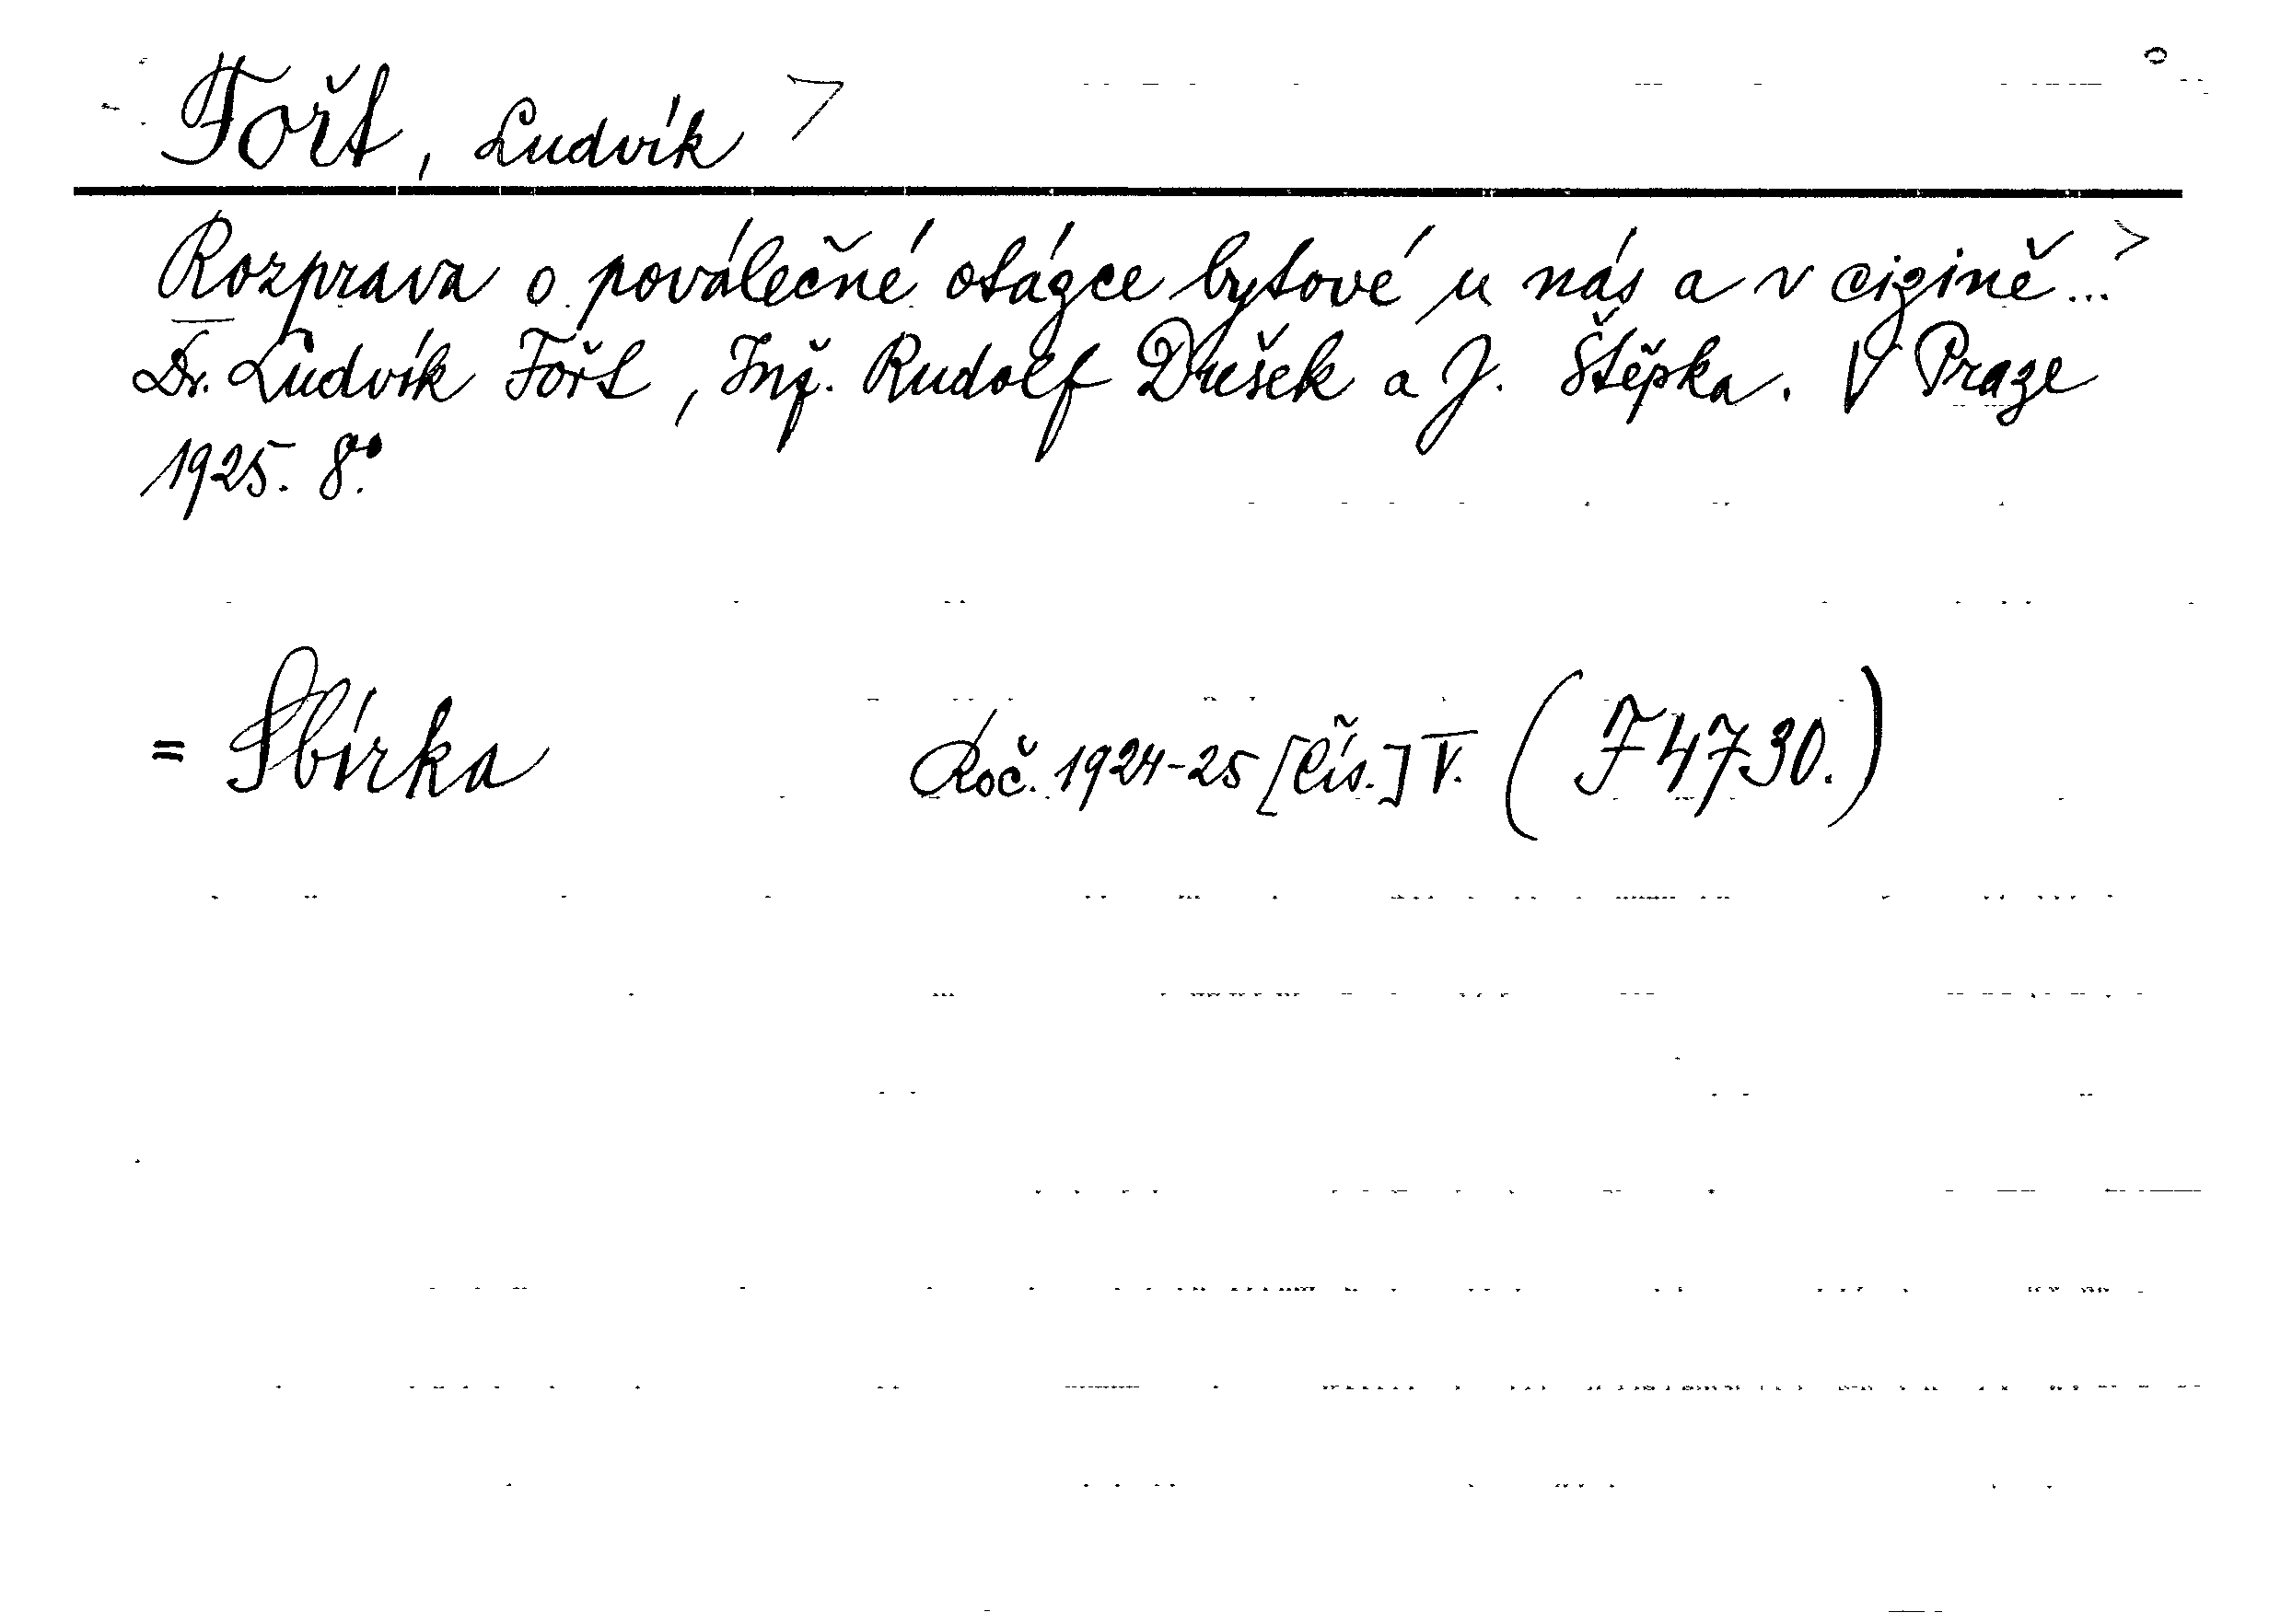 Fořt, Ludvík >
Rozprava o poválečné otázce bytové u nás a v cizině... >
Dr. Ludvík Fořt, Inž. Rudolf Dušek a J. Štěpka. V Praze
1925. 8°.
= Sbírka Roč. 1924-25 [Čís.] V. (F 4730.)